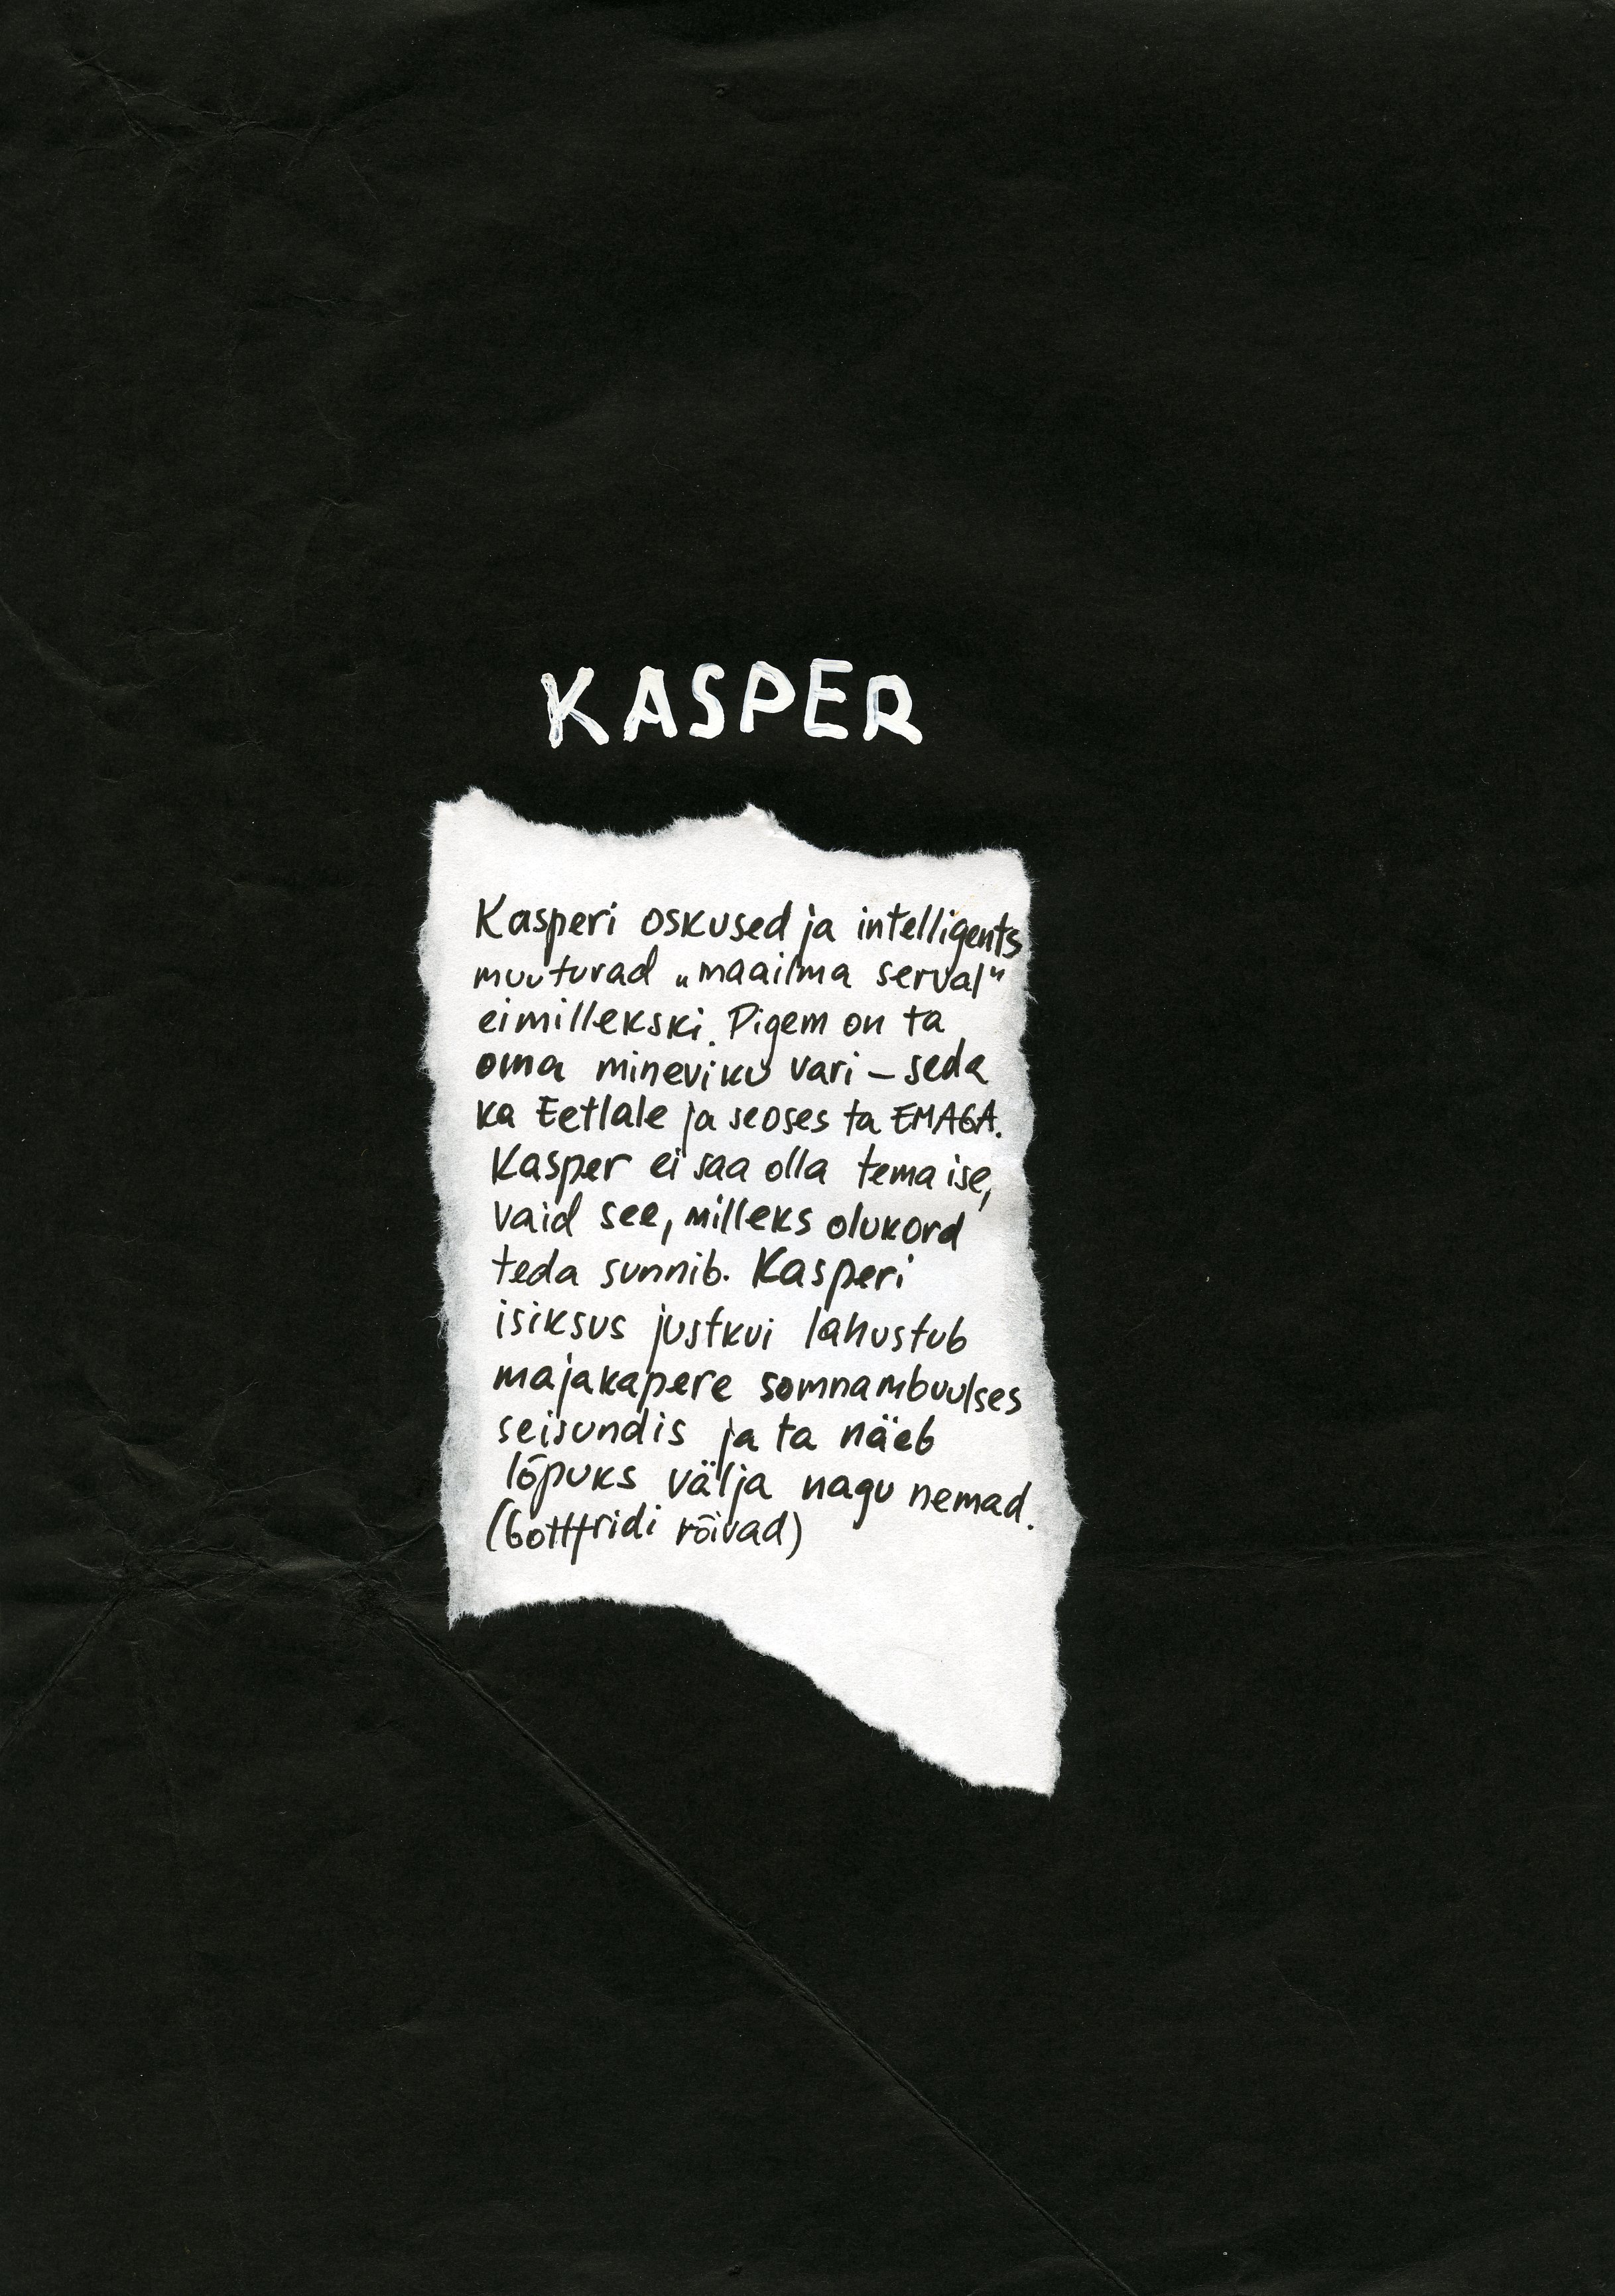 KASPER
Kasperi oskused ja intelligents
muutuvad „maailma serval"
eimillekski. Pigem on ta
oma mineviku vari – seda
ka Eetlale ja seoses ta EMAGA.
Kasper ei saa olla tema ise,
vaid see, milleks olukord
teda sunnib. Kasperi
isiksus justkui lahustub
majakapere somnambuulses
seisundis ja ta näeb
lõpuks välja nagu nemad.
(Gottfridi rõivad)